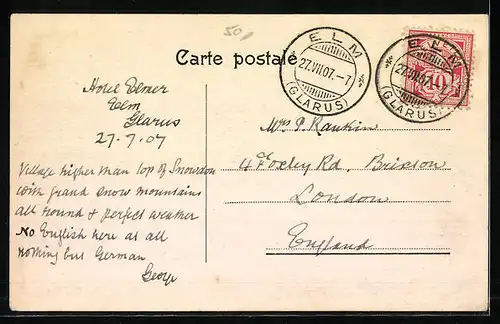 50/
Carte postale
ELM
27.VII.07.-7
(GLARUS)
ELM
27.VII.07.-7
(GLARUS)
10
Hotel Elmer
Elm
Glarus
27-7-07
Village higher than top of Snowdon
with grand snow mountains
all round & perfect weather
No English here at all
nothing but German
George
Mrs P. Rankin
4 Foxley Rd, Brixton
London
England